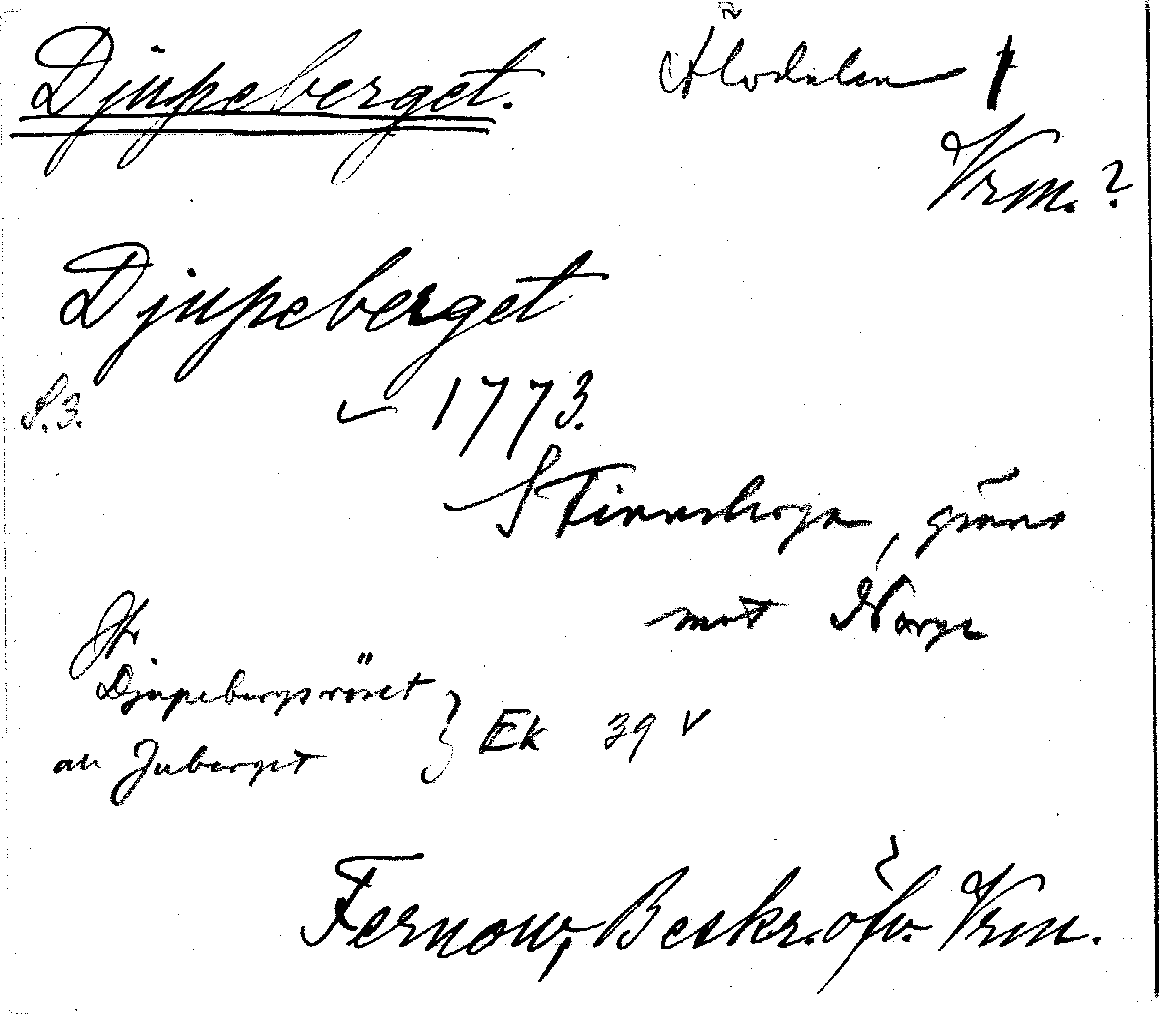 Djupeberget. Älvdalen
Vrm.?
Djupeberget
S. 3. 1773.
S Finnskoga, gräns
mot Norge
Jfr
Djupebergsröset
au Juberget } Ek 39 v
Fernow, Beskr. öfv. Vrm.